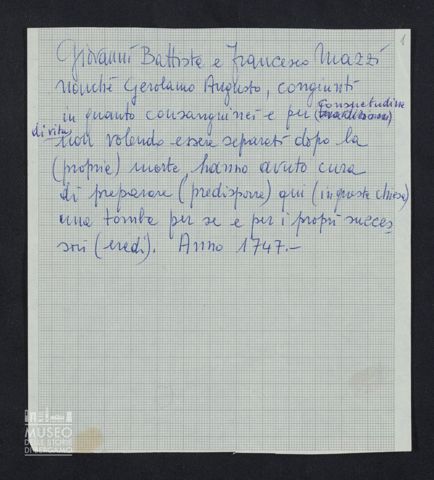 1
Giovanni Battista e Francesco Mazzi
nonchè Gerolamo Augusto, congiunti
in quanto consanguinei e per consuetudine
di vita non volendo essere separati dopo la
(propria) morte hanno avuto cura
di preparare (predisporre) qui (in questa chiesa)
una tomba per se e per i propri succes-
sori (eredi). Anno 1747.-
MUSEO
DELLE STORIE
DI BERGAMO